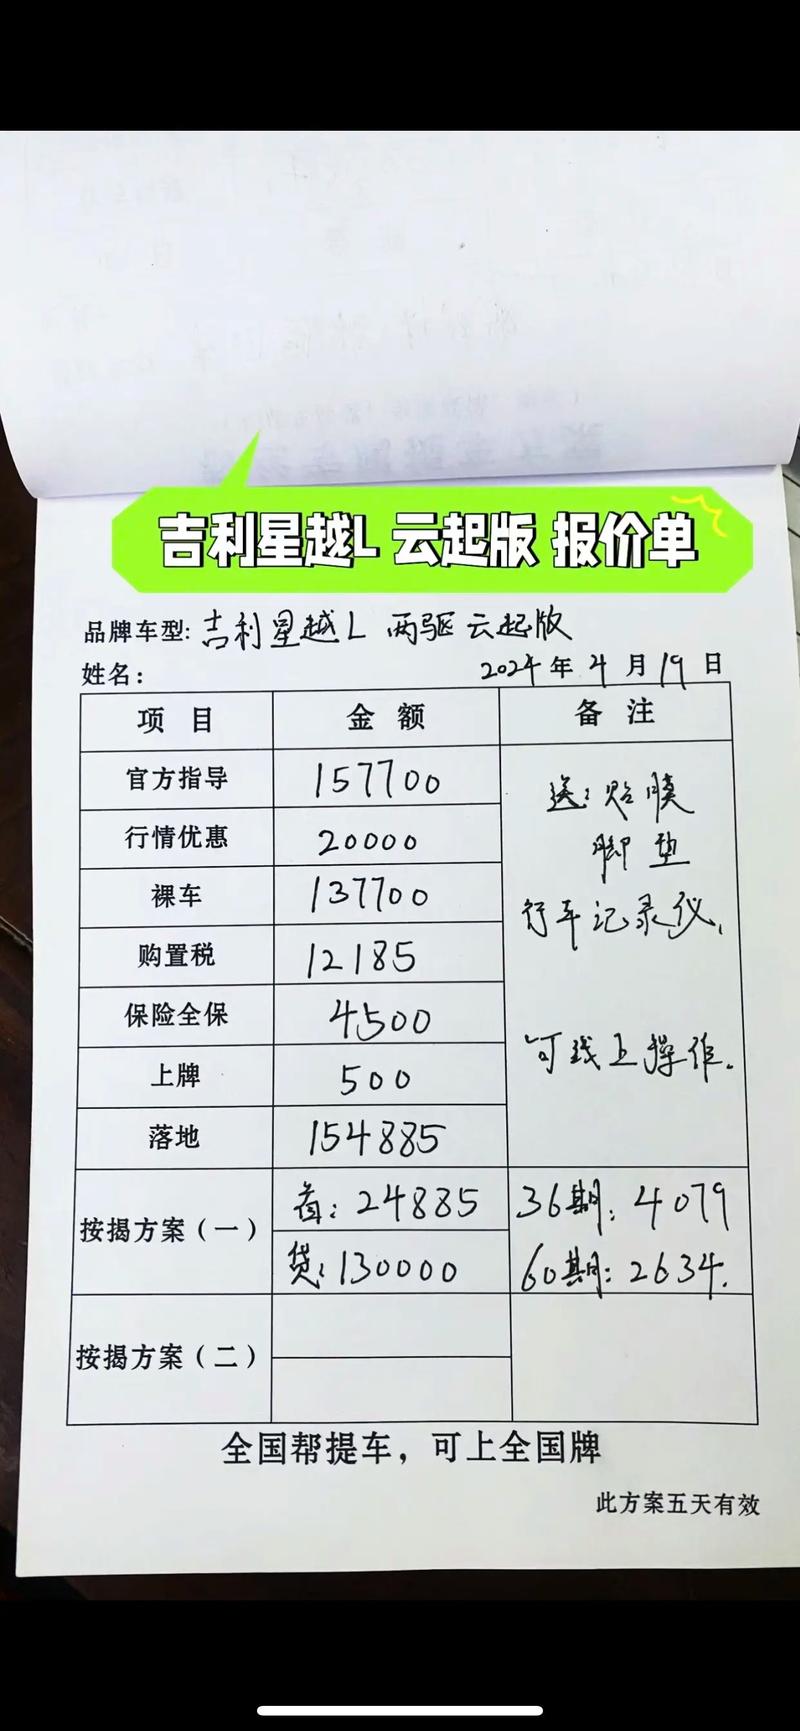 吉利星越L 云起版 报价单
品牌车型: 吉利星越L 两驱云起版
姓名: 2024年4月19日
项目 金额 备注
官方指导 157700
送: 贴膜
行情优惠 20000
脚垫
裸车 137700
行车记录仪,
购置税 12185
保险全保 4500
可线上操作.
上牌 500
落地 154885
按揭方案(一) 首: 24885 36期: 4079
贷: 130000 60期: 2634.
按揭方案(二)
全国帮提车,可上全国牌
此方案五天有效